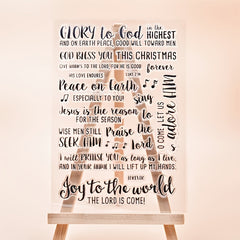 GLORY to God in the HIGHEST
AND ON EARTH PEACE, GOOD WILL TOWARD MEN
GOD BLESS YOU THIS CHRISTMAS
GIVE THANKS TO THE LORD, FOR HE IS GOOD
HIS LOVE ENDURES forever
LUKE 2:14
Peace on Earth
ESPECIALLY TO YOU!
sing
Jesus is the reason
FOR THE SEASON
O COME LET US adore HIM
WISE MEN STILL
SEEK HIM
Praise the Lord
I will PRAISE YOU as long as I live,
AND IN YOUR NAME I WILL LIFT UP MY HANDS.
Joy to the world
THE LORD IS COME!